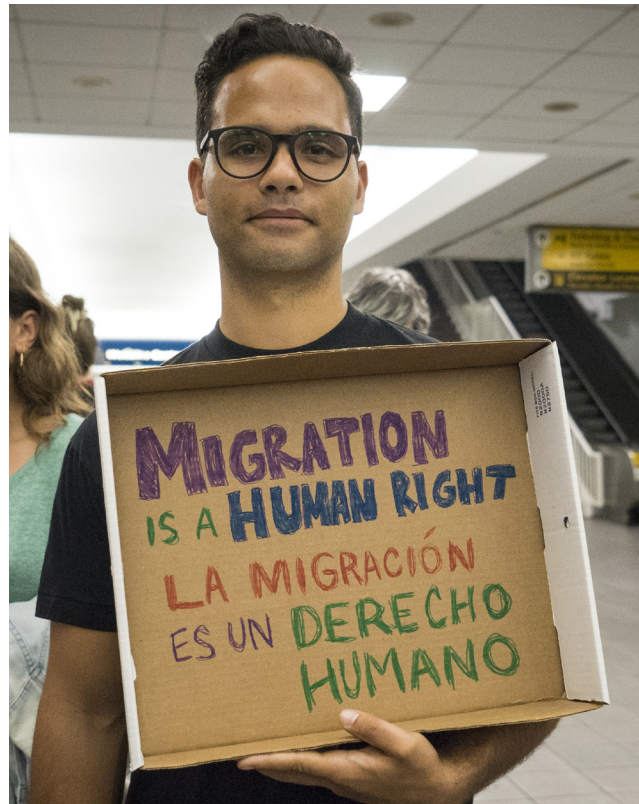 MIGRATION
IS A HUMAN RIGHT
LA MIGRACIÓN
ES UN DERECHO
HUMANO